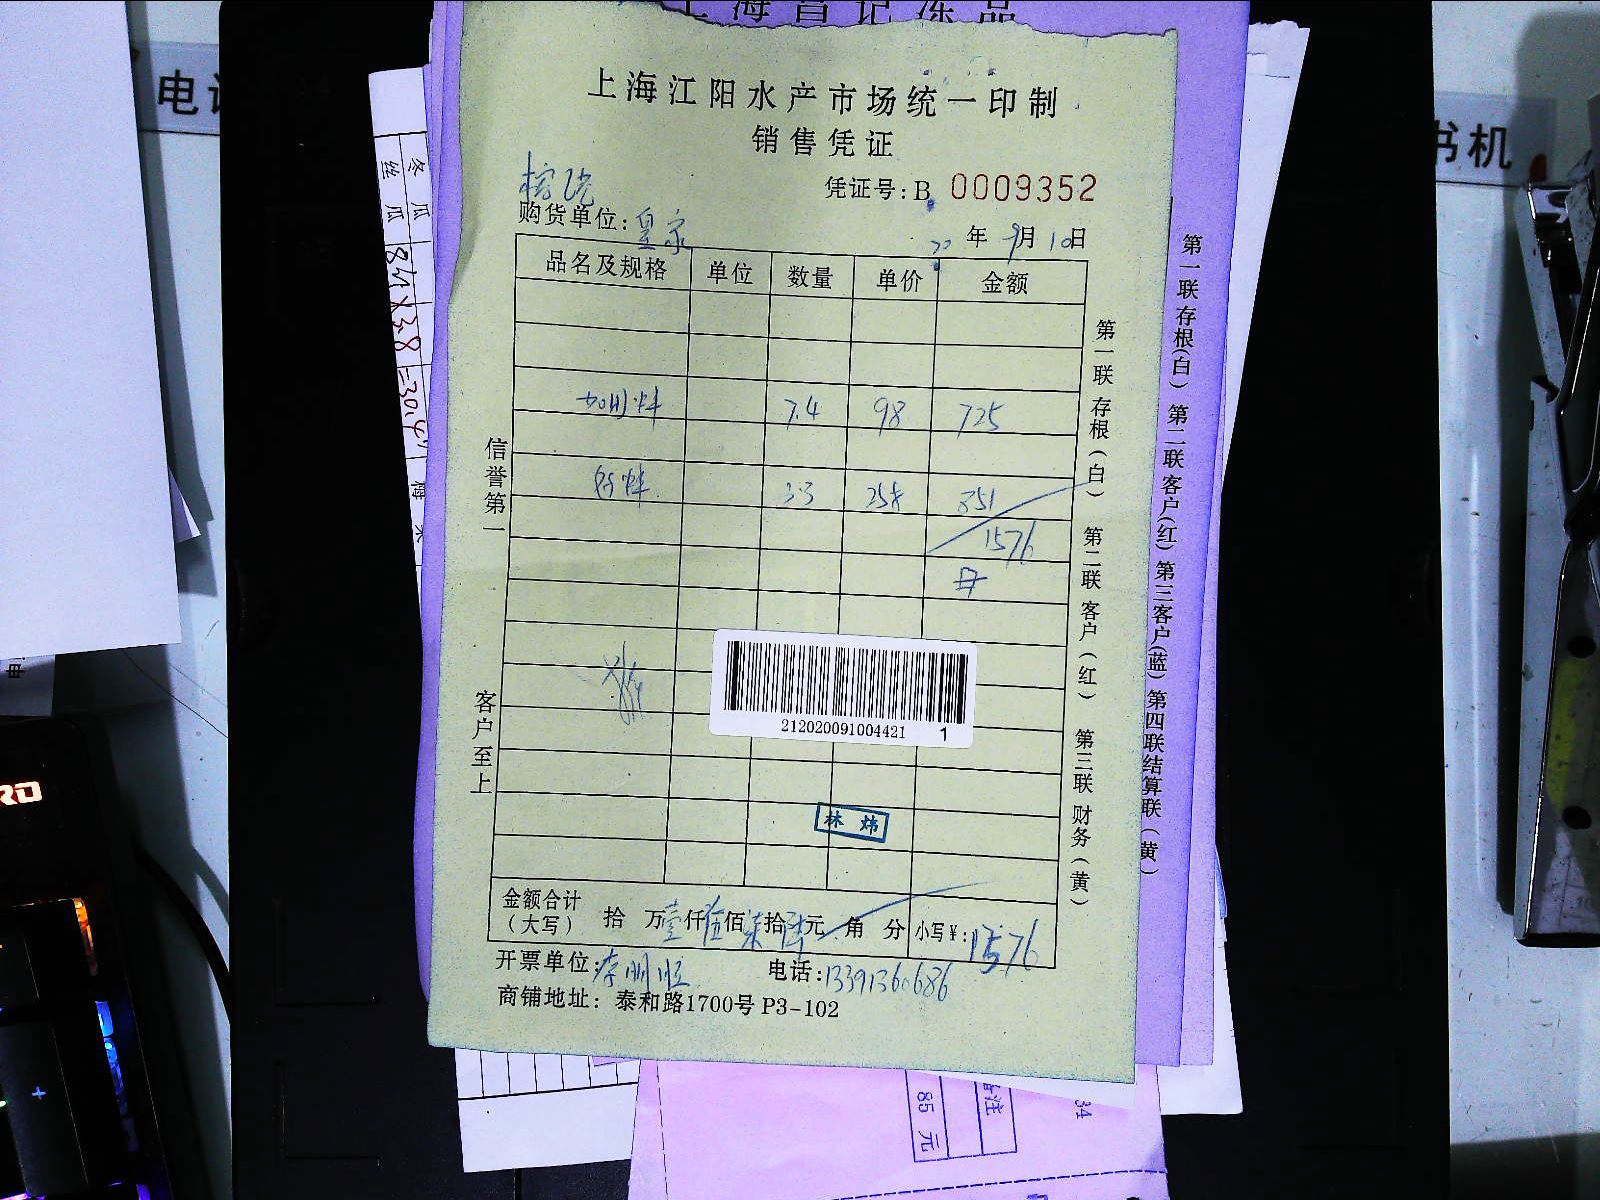 上海江阳水产市场统一印制
销售凭证
凭证号:B 0009352
购货单位:皇家
20年9月10日
品名及规格 单位 数量 单价 金额
7.4 98 725
3.3 258 851
1576
212020091004421 1
林炜
金额合计(大写) 拾 万壹仟伍佰柒拾陆元 角 分 小写¥:1576
开票单位: 电话:13391360686
商铺地址: 泰和路1700号 P3-102
信誉第一
客户至上
第一联 存根(白) 第二联 客户(红) 第三联 财务(黄)
第一联存根(白) 第二联客户(红) 第三客户(蓝) 第四联结算联(黄)
冬瓜
丝瓜 8斤×3.8=30.4
书机
85 元
备注